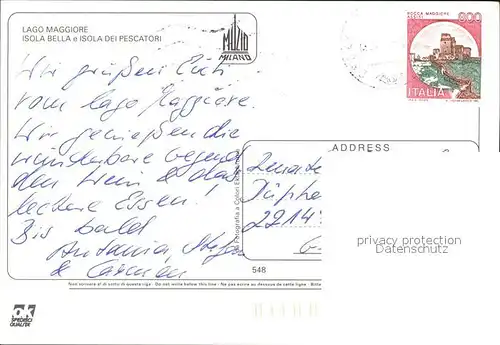 LAGO MAGGIORE
ISOLA BELLA e ISOLA DEI PESCATORI
MUZIO
MILANO
ROCCA MAGGIORE
ASSISI
600
ITALIA
Wir grüßen Euch
vom Lago Maggiore.
Wir genießen die
wunderbare Gegend
den Wein & das
leckere Essen.
Bis bald
Antonia,
& Carmen
ADDRESS
2214
privacy protection
Datenschutz
548
Non scrivere al di sotto di questa riga - Do not write below this line - Ne pas écrire au dessous de cette ligne - Bitte
OK
SPEDIRE
QUALITÀ